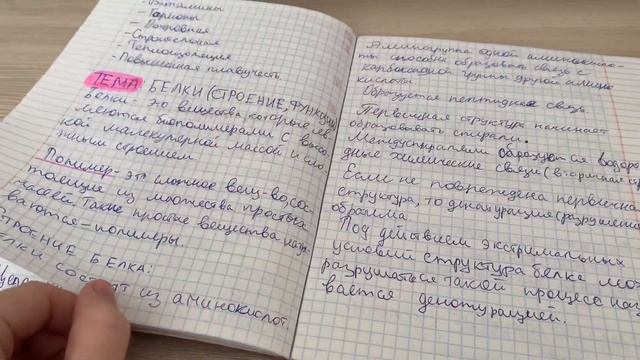 - Витамины
- Гормоны
- Покровная
- Строительная
- Теплоизоляция
- Повышенная плавучесть
ТЕМА: БЕЛКИ (СТРОЕНИЕ, ФУНКЦИИ)
Белки - это вещества, которые яв
ляются биополимерами с высо-
кой малекулярной массой и сло
жным строением
Полимер - это сложное вещ-во, сос-
тоящие из множества простых
Такие простые вещества назы
ваются = полимеры.
СТРОЕНИЕ БЕЛКА:
из аминокислот.
Аминогруппа одной аминокисло-
ты способна образовать связь с
карбоксильной группы другой амино
кислоты
Образуется пептидная связь
Первичная структура начинает
образовывать спираль.
образуются водоро
дные химические связи (вторичная
Если не повреждена первична
структура, то денатурация (разрушения
обратима
Под действием экстримальных
условий структура белка мож
разрушаться такой процесс наз
вается денотурацией.